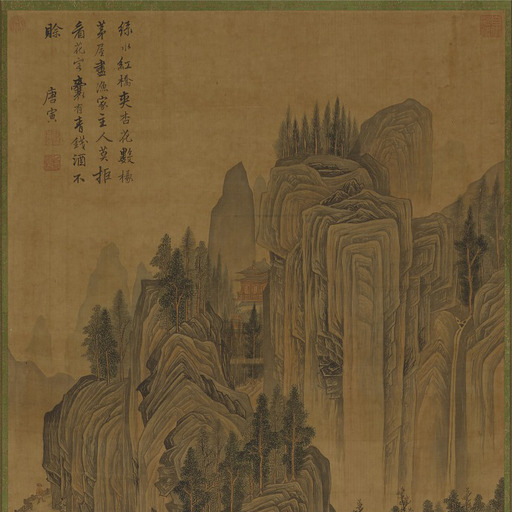 綠水紅橋夾杏花數椽
茅屋盡漁家主人莫拒
看花客囊有青錢酒不
賒
唐寅